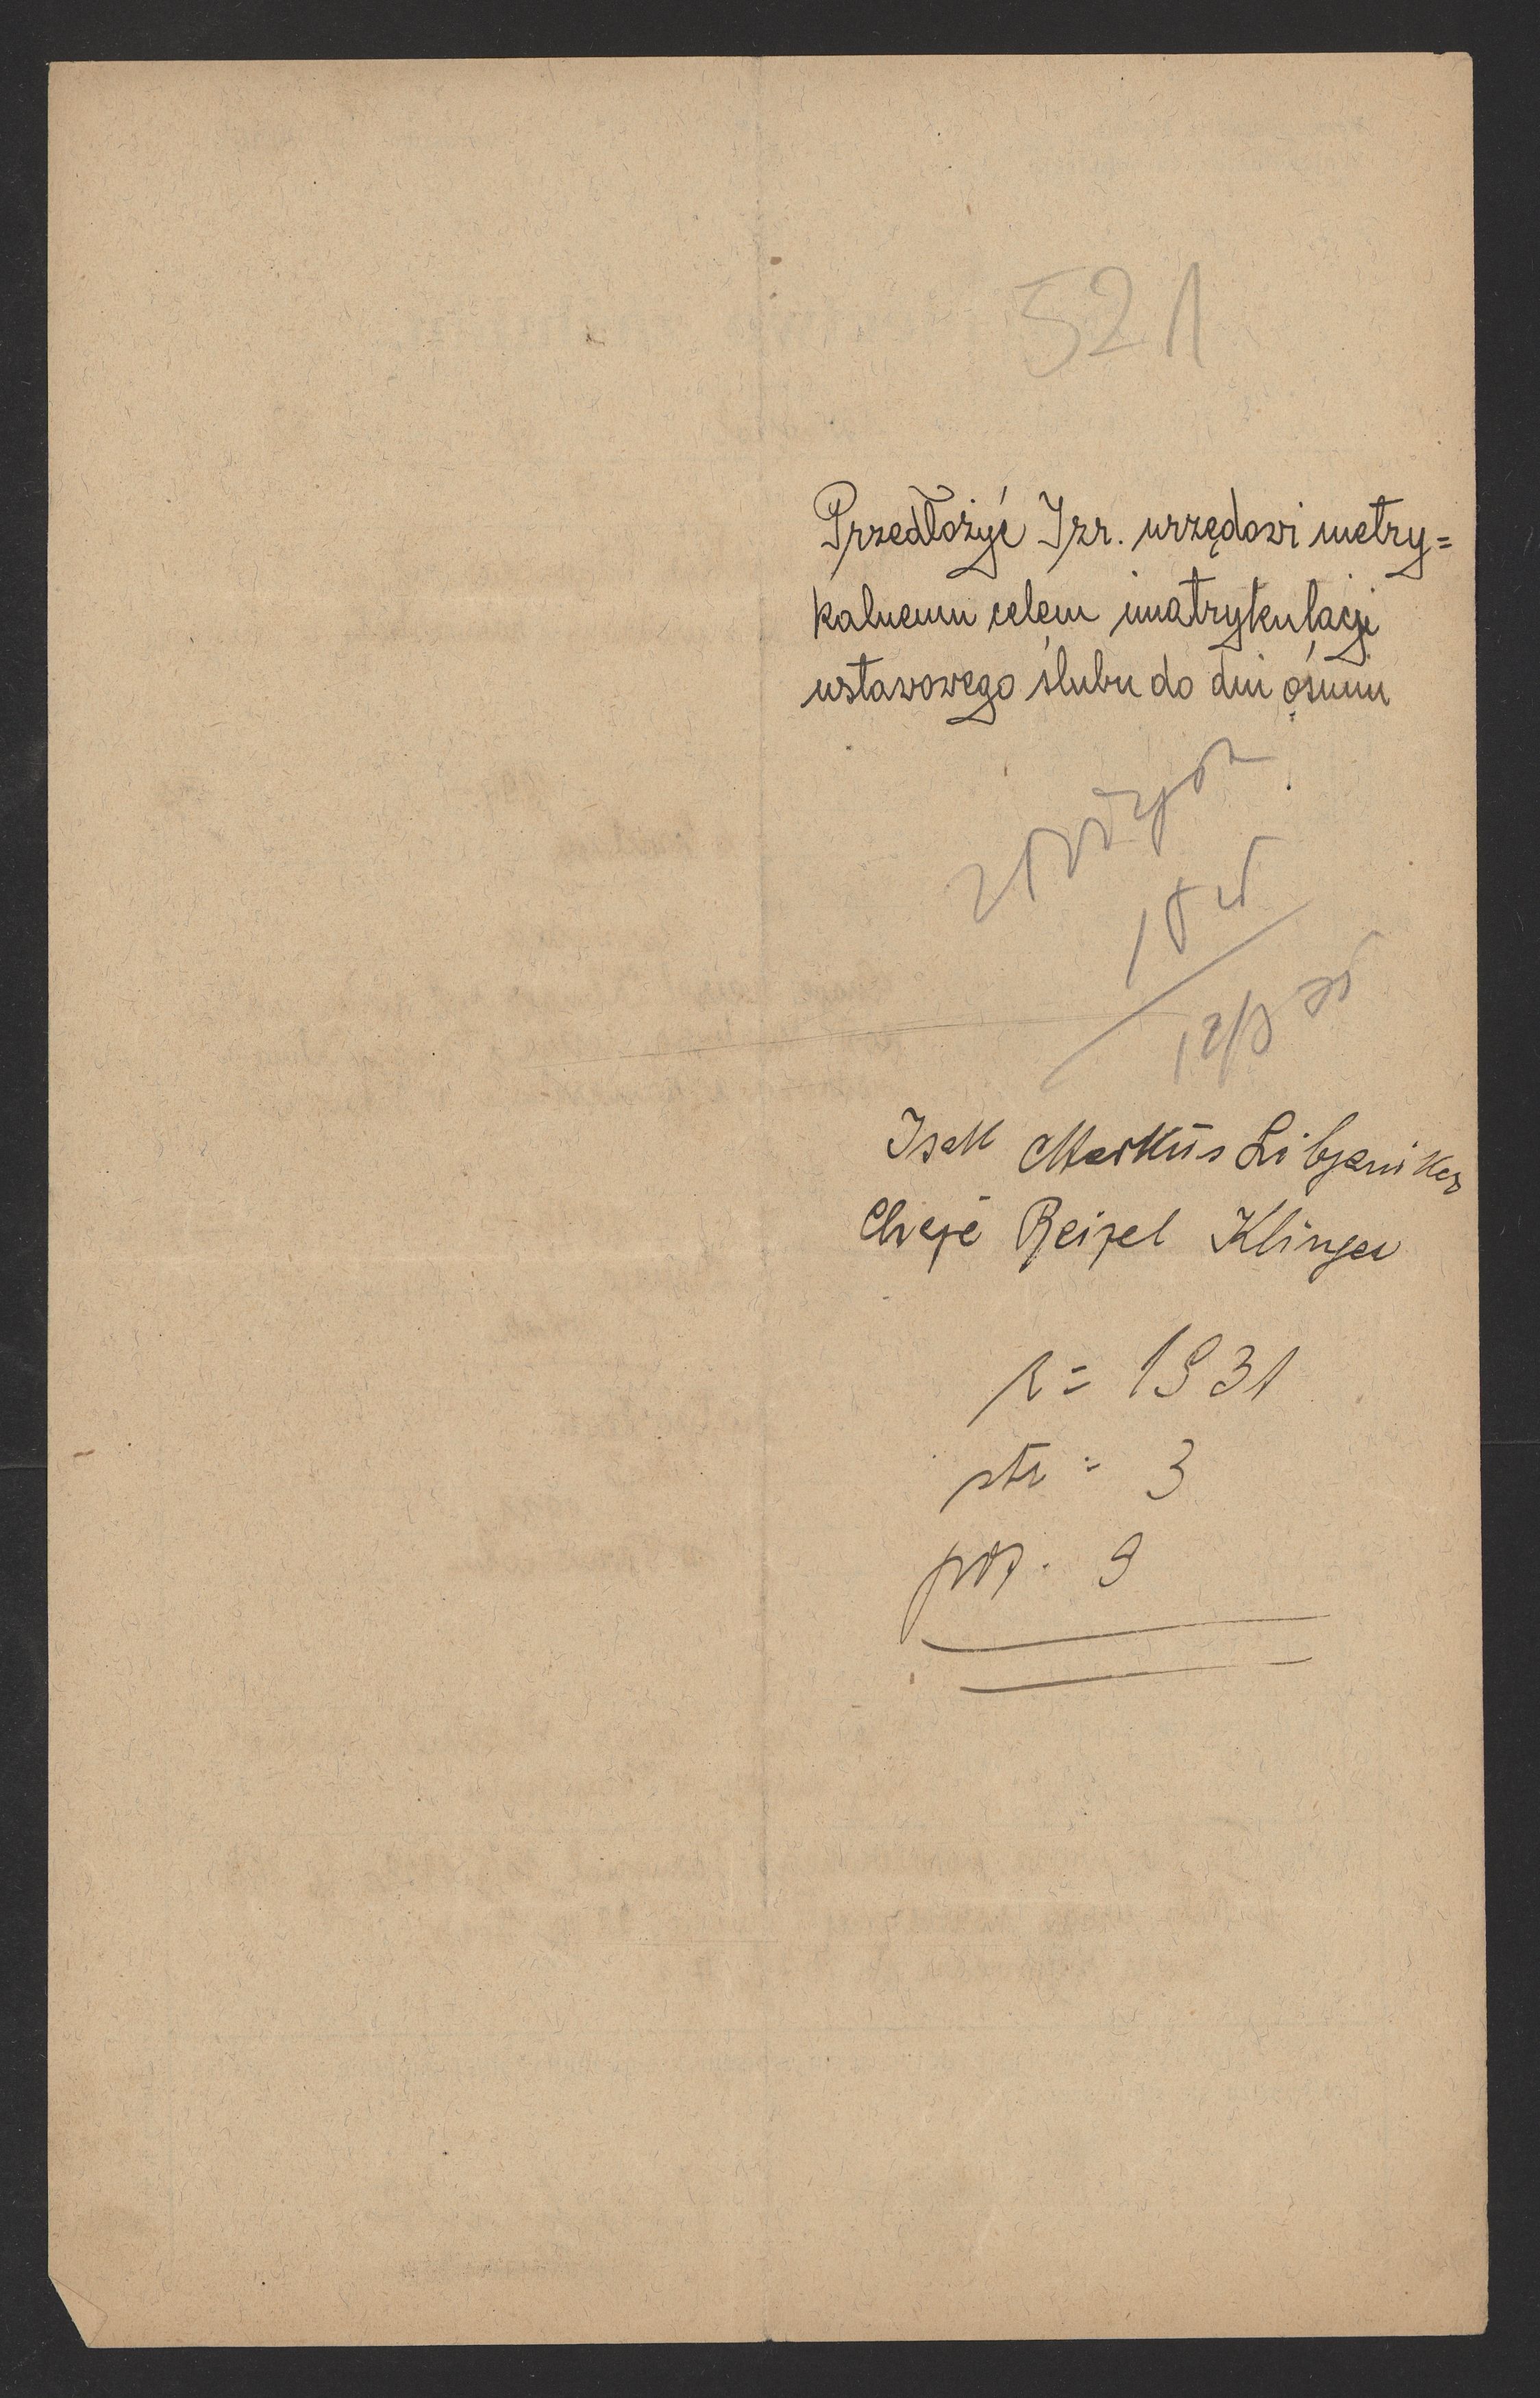 521
Przedłożyć Izr. urzędowi metry=
kalnemu celem imatrykulacji
ustawowego ślubu do dni ośmiu
Isak Markus
Chaje Reizel Klinger
r = 1931
str = 3
poz. 9